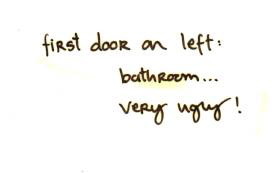 first door on left:
bathroom...
very ugly!